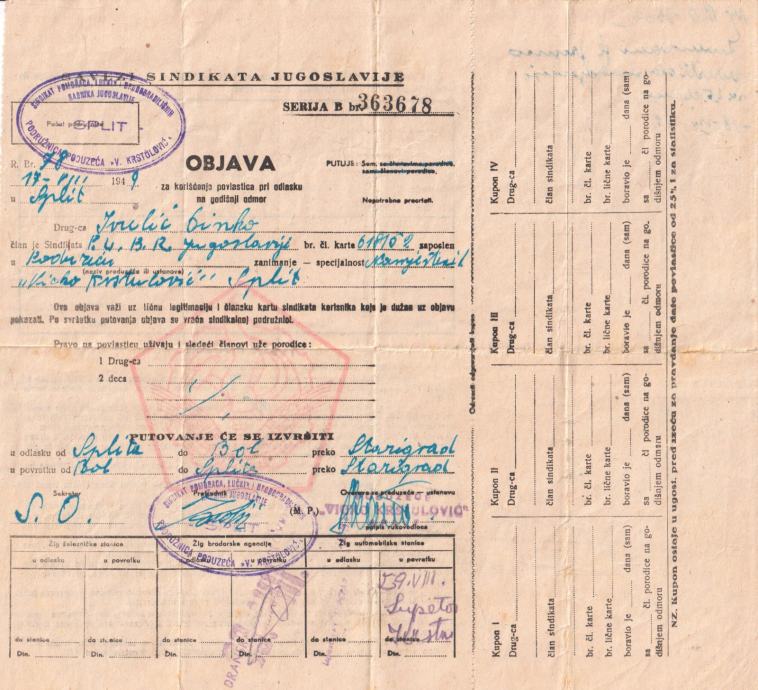 SAVEZI SINDIKATA JUGOSLAVIJE
SINDIKAT POMORACA, LUČKIH I BRODOGRADILIŠNIH
RADNIKA JUGOSLAVIJE
SPLIT
PODRUŽNICA PODUZEĆA »V. KRSTOLOVIĆ«
SERIJA B br. 363678
Pečat podružnice
R. Br. 78
17-VIII 1949.
u Split
OBJAVA
za korišćenje povlastice pri odlasku
na godišnji odmor
PUTUJE: Sam, sa članovima porodice,
sam članovi porodice.
Nepotrebno precrtati.
Drug-ca Ivelić Cinko
član je Sindikata P. L. B. R. Jugoslavije br. čl. karte 618152 zaposlen
u Poduzeću zanimanje — specijalnost
(naziv preduzeća ili ustanove)
"Vicko Krstulović" Split
Ova objava važi uz ličnu legitimaciju i člansku kartu sindikata korisnika koje je dužan uz objavu
pokazati. Po svršetku putovanja objava se vraća sindikalnoj podružnici.
Pravo na povlasticu uživaju i sledeći članovi uže porodice:
1 Drug-ca
2 deca
PUTOVANJE ĆE SE IZVRŠITI
u odlasku od Splita do Bol preko Starigrad
u povratku od Bol do Splita preko Starigrad
Sekretar
Pretsjednik
Overava preduzeće — ustanova
S. O.
(M. P.)
PODUZEĆE
"VICKO KRSTULOVIĆ"
potpis rukovodioca
SINDIKAT POMORACA, LUČKIH I BRODOGRADILIŠNIH
RADNIKA JUGOSLAVIJE
SPLIT
PODRUŽNICA PODUZEĆA »V. KRSTOLOVIĆ«
Žig železničke stanice Žig brodarske agencije Žig automobilske stanice
u odlasku u povratku u odlasku u povratku u odlasku u povratku
29.VIII.
Supetar
do stanice do stanice do stanice do stanice do stanice do stanice
Din. Din. Din. Din. Din. Din.
Odrezati odgovarajući kupon
Kupon IV
Drug-ca
član sindikata
br. čl. karte
br. lične karte
boravio je dana (sam)
sa čl. porodice na go-
dišnjem odmoru
Kupon III
Drug-ca
član sindikata
br. čl. karte
br. lične karte
boravio je dana (sam)
sa čl. porodice na go-
dišnjem odmoru
Kupon II
Drug-ca
član sindikata
br. čl. karte
br. lične karte
boravio je dana (sam)
sa čl. porodice na go-
dišnjem odmoru
Kupon I
Drug-ca
član sindikata
br. čl. karte
br. lične karte
boravio je dana (sam)
sa čl. porodice na go-
dišnjem odmoru
NZ. Kupon ostaje u ugost. preduzeću za pravdanje date povlastice od 25% i za statistiku.